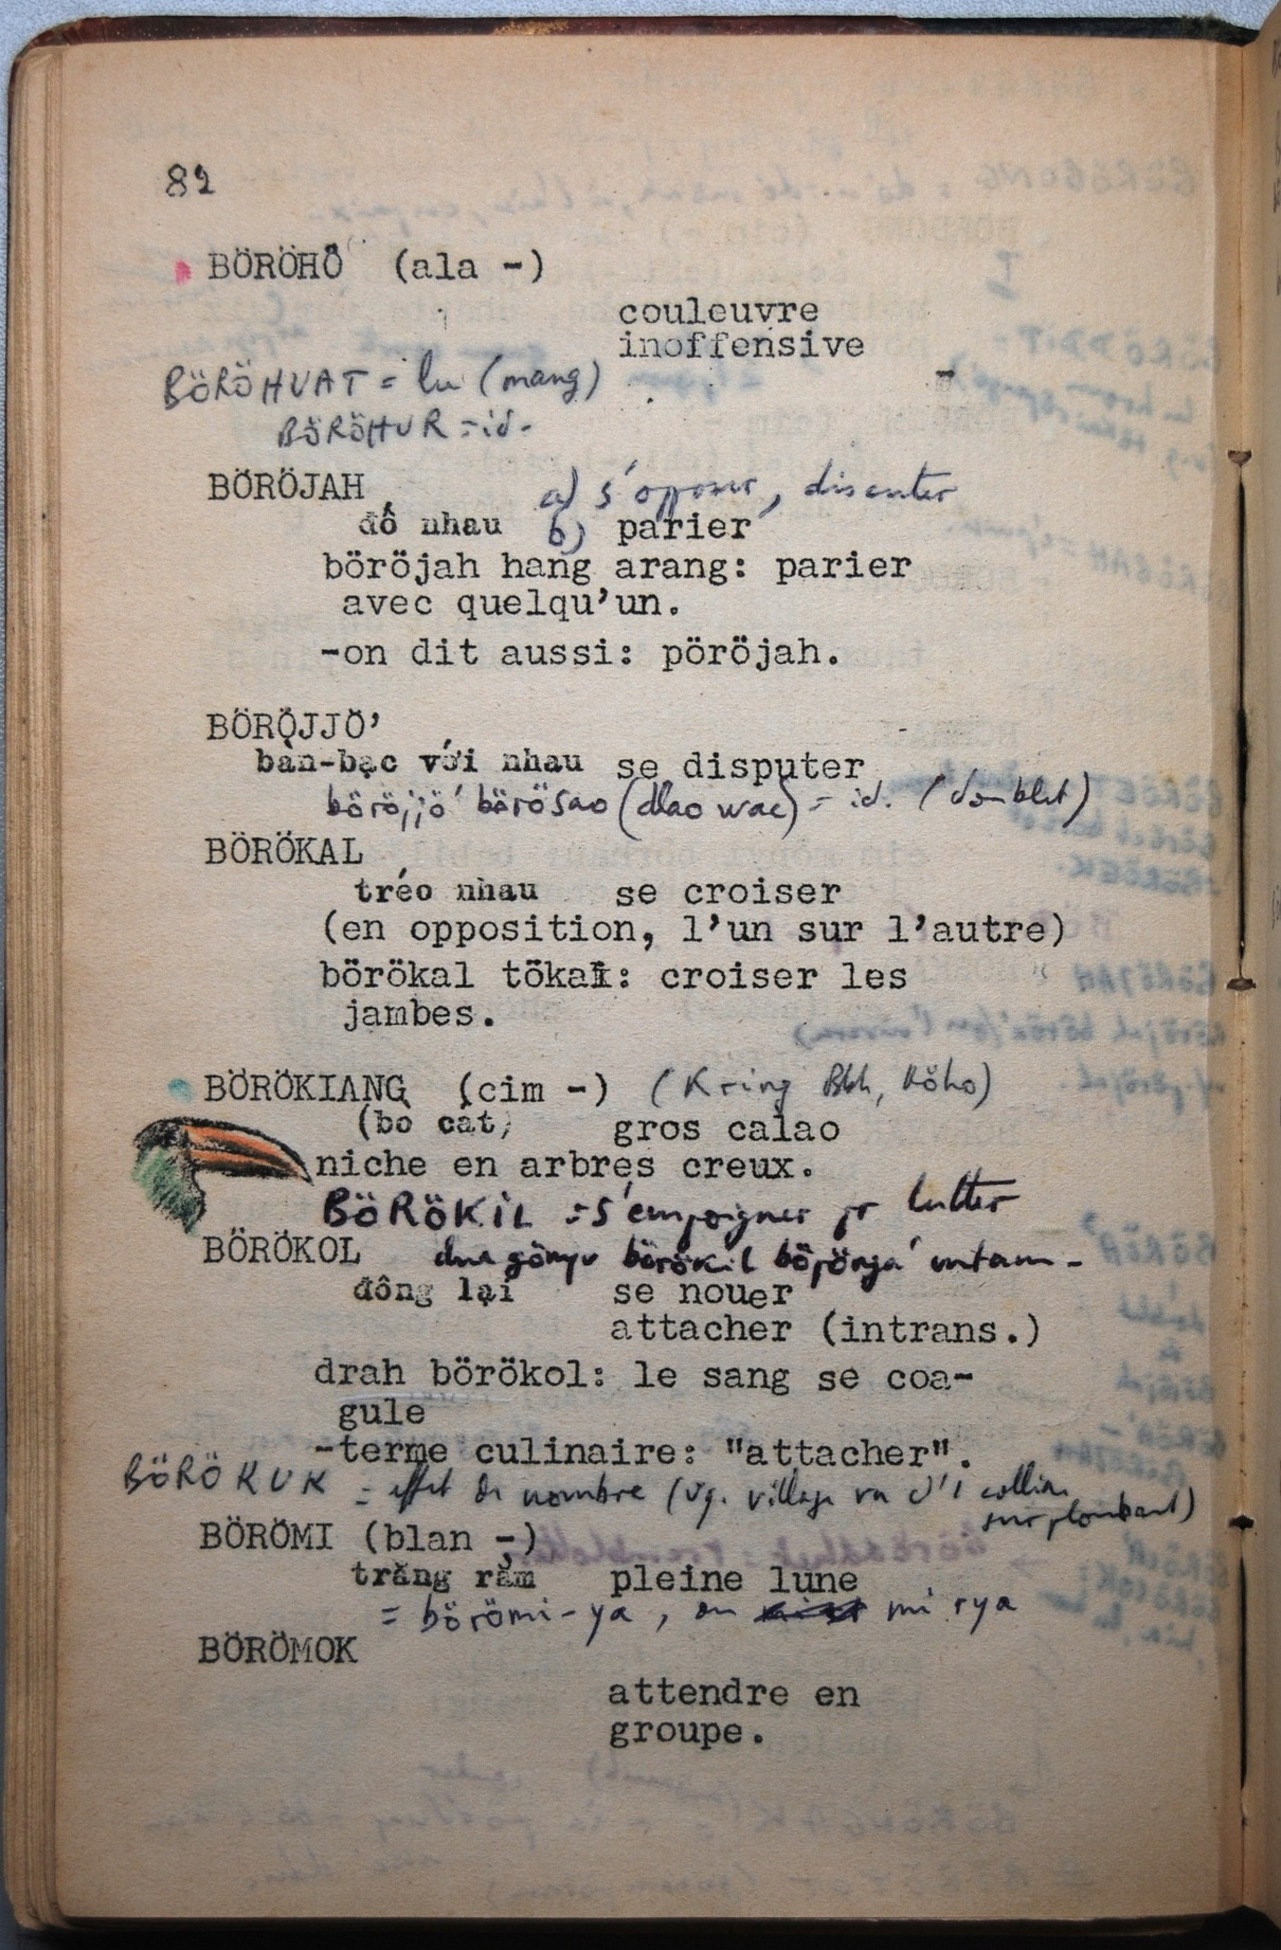 82
BÖRÖHÖ (ala -)
couleuvre
inoffensive
BÖRÖHUAT = lu (mang)
BÖRÖHUR = id.
BÖRÖJAH a) s'opposer, discuter
đố nhau b) parier
böröjah hang arang: parier
avec quelqu'un.
-on dit aussi: pöröjah.
BÖRÖJJÖ'
bàn-bạc với nhau se disputer
böröjjö' börösao (dlao wac) = id. (doublet)
BÖRÖKAL
tréo nhau se croiser
(en opposition, l'un sur l'autre)
börökal tökai: croiser les
jambes.
BÖRÖKIANG (cim -) (Kring Bbh, Röho)
(bò cát) gros calao
niche en arbres creux.
BÖRÖKIL = s'empoigner pr lutter
BÖRÖKOL börökil
đông lại se nouer
attacher (intrans.)
drah börökol: le sang se coa-
gule
-terme culinaire: "attacher".
BÖRÖKUK = effet de nombre (vg. village vu d'1 colline
surplombant)
BÖRÖMI (blan -)
trăng rằm pleine lune
= börömi-ya, ou mi rya
BÖRÖMOK
attendre en
groupe.